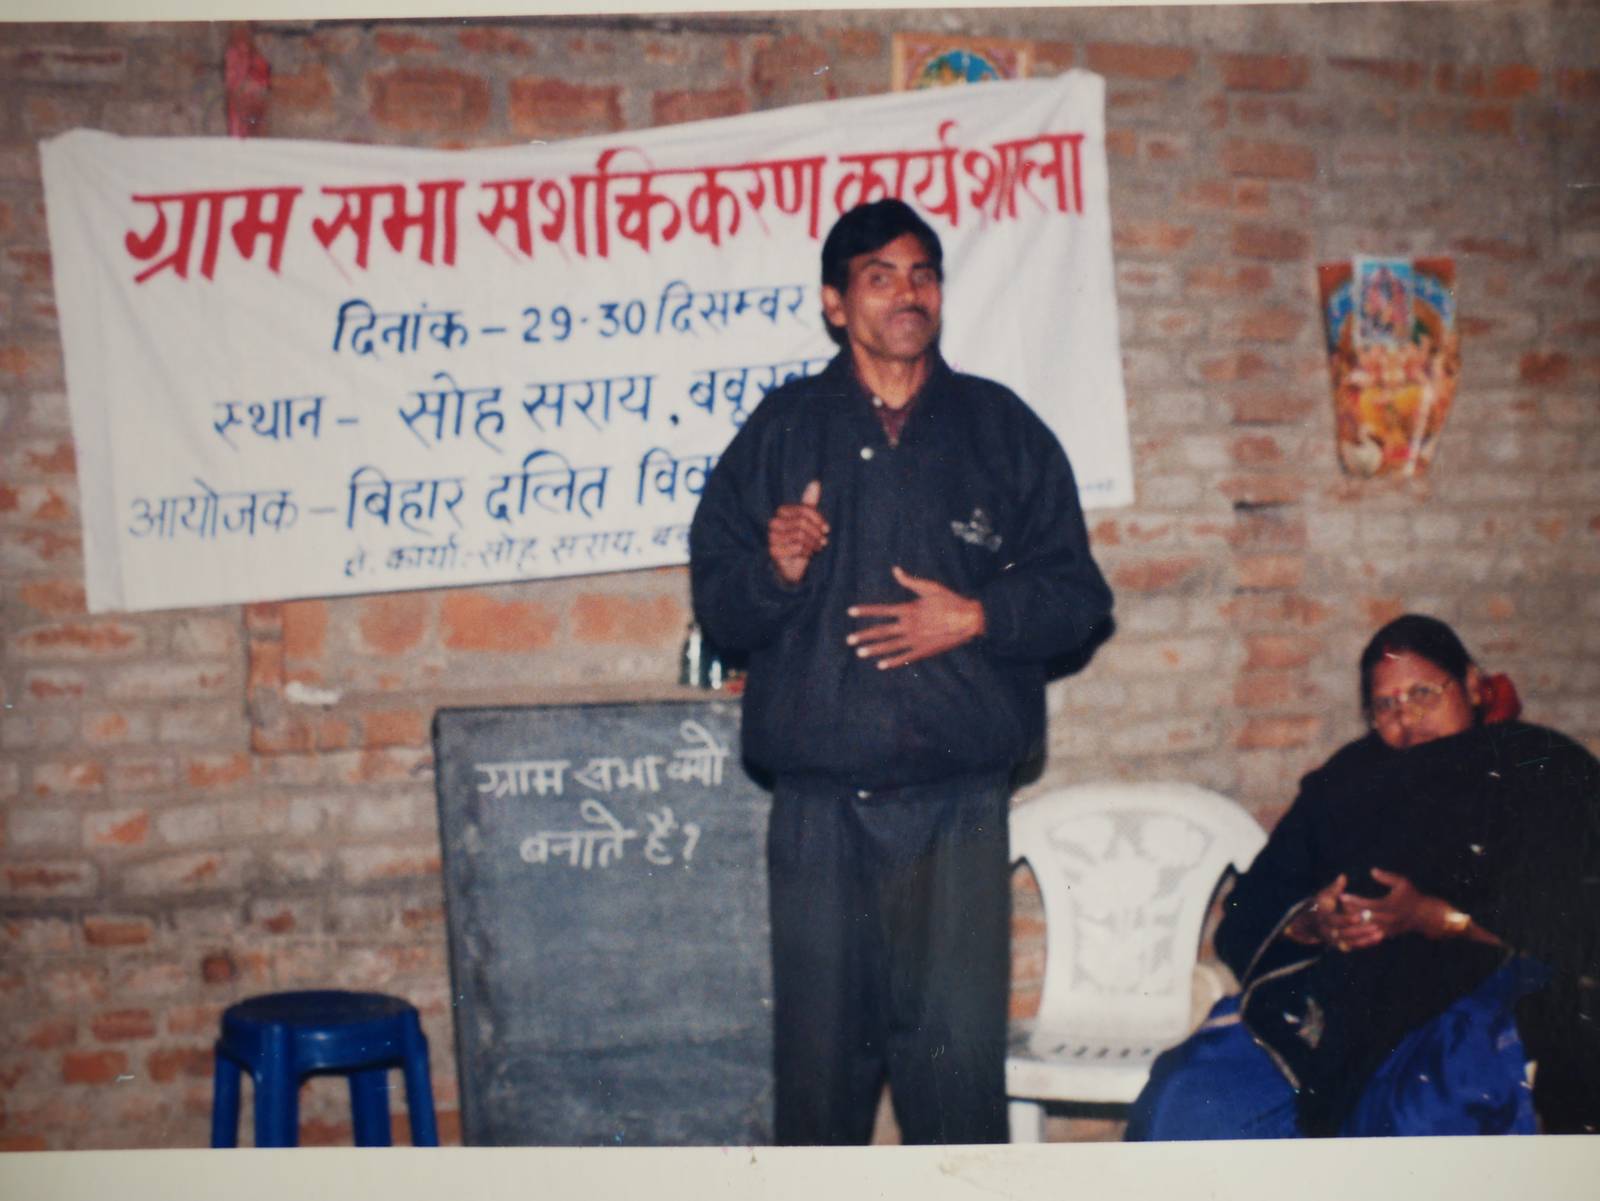 ग्राम सभा सशक्तिकरण कार्यशाला
दिनांक - 29-30 दिसम्बर
स्थान - सोह सराय,
आयोजक - बिहार दलित
कार्या:- सोह सराय.
ग्राम सभा क्यो
बनाते है?